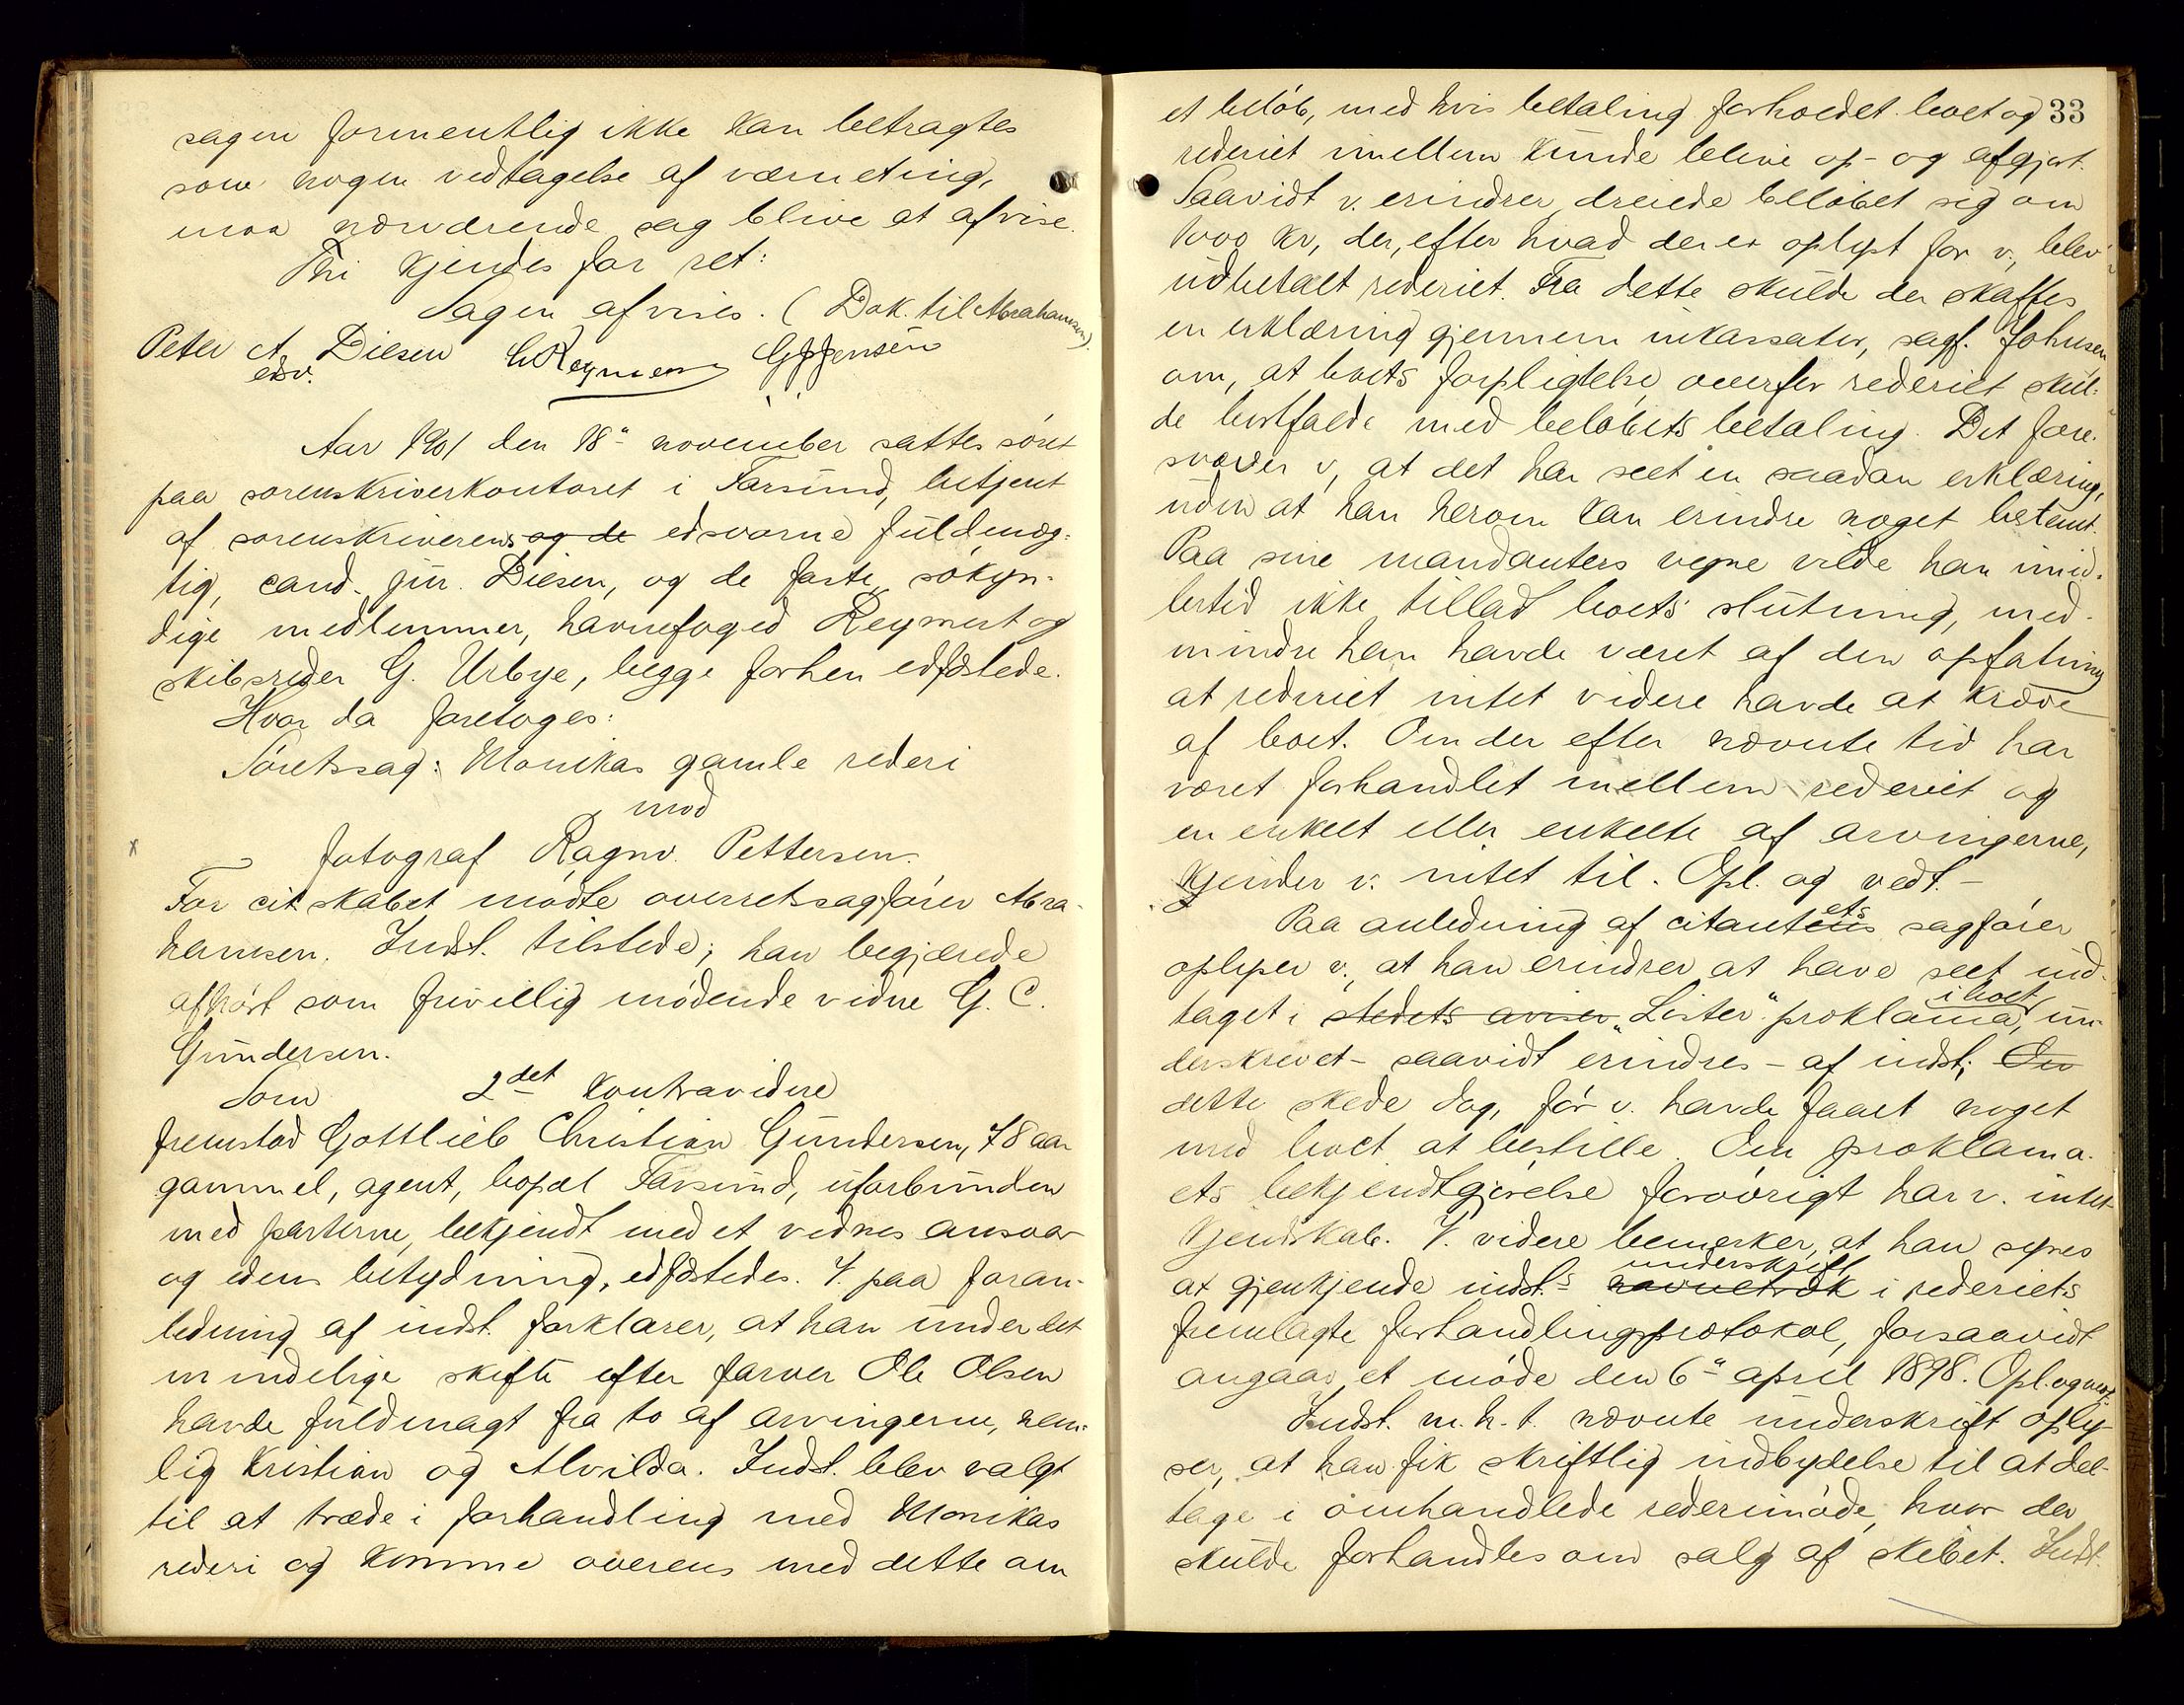 sagen formentlig ikke kan betragtes
som nogen vedtagelse af værneting,
maa nærværende sag blive at afvise.
Thi kjendes for ret:
Sagen afvises. (Dok. til Abrahamsen).
Peter A. Diesen CReymert GJJensen
edsv.
Aar 1901 den 18de november sattes søret
paa sorenskriverkontoret i Farsund, betjent
af sorenskriverens og de edsvorne fuldmæg-
tig, cand. jur. Diesen, og de faste, søkyn-
dige medlemmer, havnefoged Reymert og
skibsreder G. Urbye, begge forhen edfæstede.
Hvor da foretoges:
Søretssag: Monikas gamle rederi
mod
fotograf Ragnv. Pettersen.
For citskabet mødte overretssagfører Abra-
hamsen. Indst. tilstede; han begjærede
afhørt som frivillig mødende vidne G. C.
Gundersen.
Som 2det kontravidne
fremstod Gottlieb Christian Gundersen, 78 aar
gammel, agent, bopæl Farsund, uforbunden
med parterne, bekjendt med et vidnes ansvar
og edens betydning, edfæstedes. V. paa foran-
ledning af indst. forklarer, at han under det
mindelige skifte efter farver Ole Olsen
havde fuldmagt fra to af arvingerne, nem-
lig Kristian og Alvilda. Indst. blev valgt
til at træde i forhandling med Monikas
rederi og komme overens med dette om
33
et beløb, med hvis betaling forholdet boet og
rederiet imellem kunde blive op- og afgjort.
Saavidt v. erindrer, dreiede beløbet sig om
1000 kr, der, efter hvad der er oplyst for v., blev
udbetalt rederiet. Fra dette skulde der skaffes
en erklæring gjennem inkassator, sagf. Johnsen
om, at boets forpligtelse overfor rederiet skul-
de bortfalde med beløbets betaling. Det fore-
svæver v., at det har seet en saadan erklæring,
uden at han herom kan erindre noget bestemt.
Paa sine mandanters vegne vilde han imid-
lertid ikke tilladt boets slutning, med-
mindre han havde været af den opfatning
at rederiet intet videre havde at kræve
af boet. Om der efter nævnte tid har
været forhandlet mellem rederiet og
en enkelt eller enkelte af arvingerne,
kjender v. intet til. Opl. og vedt. –
Paa anledning af citantens ets sagfører
oplyser v., at han erindrer at have seet ind-
taget i stedets aviser „Lister“ proklama i boet, un-
derskrevet – saavidt erindres – af indst; Om
dette skede dog, før v. havde faaet noget
med boet at bestille. Om proklama-
ets bekjendtgjørelse forøvrigt har v. intet
kjendskab. V. videre bemerker, at han synes
at gjenkjende indst.s navnetræk underskrift i rederiets
fremlagte forhandlingsprotokol, forsaavidt
angaar et møde den 6te april 1898. Opl. og vedt.
Indst. m. h. t. nævnte underskrift oply-
ser, at han fik skriftlig indbydelse til at del-
tage i omhandlede rederimøde, hvor der
skulde forhandles om salg af skibet. Indst.